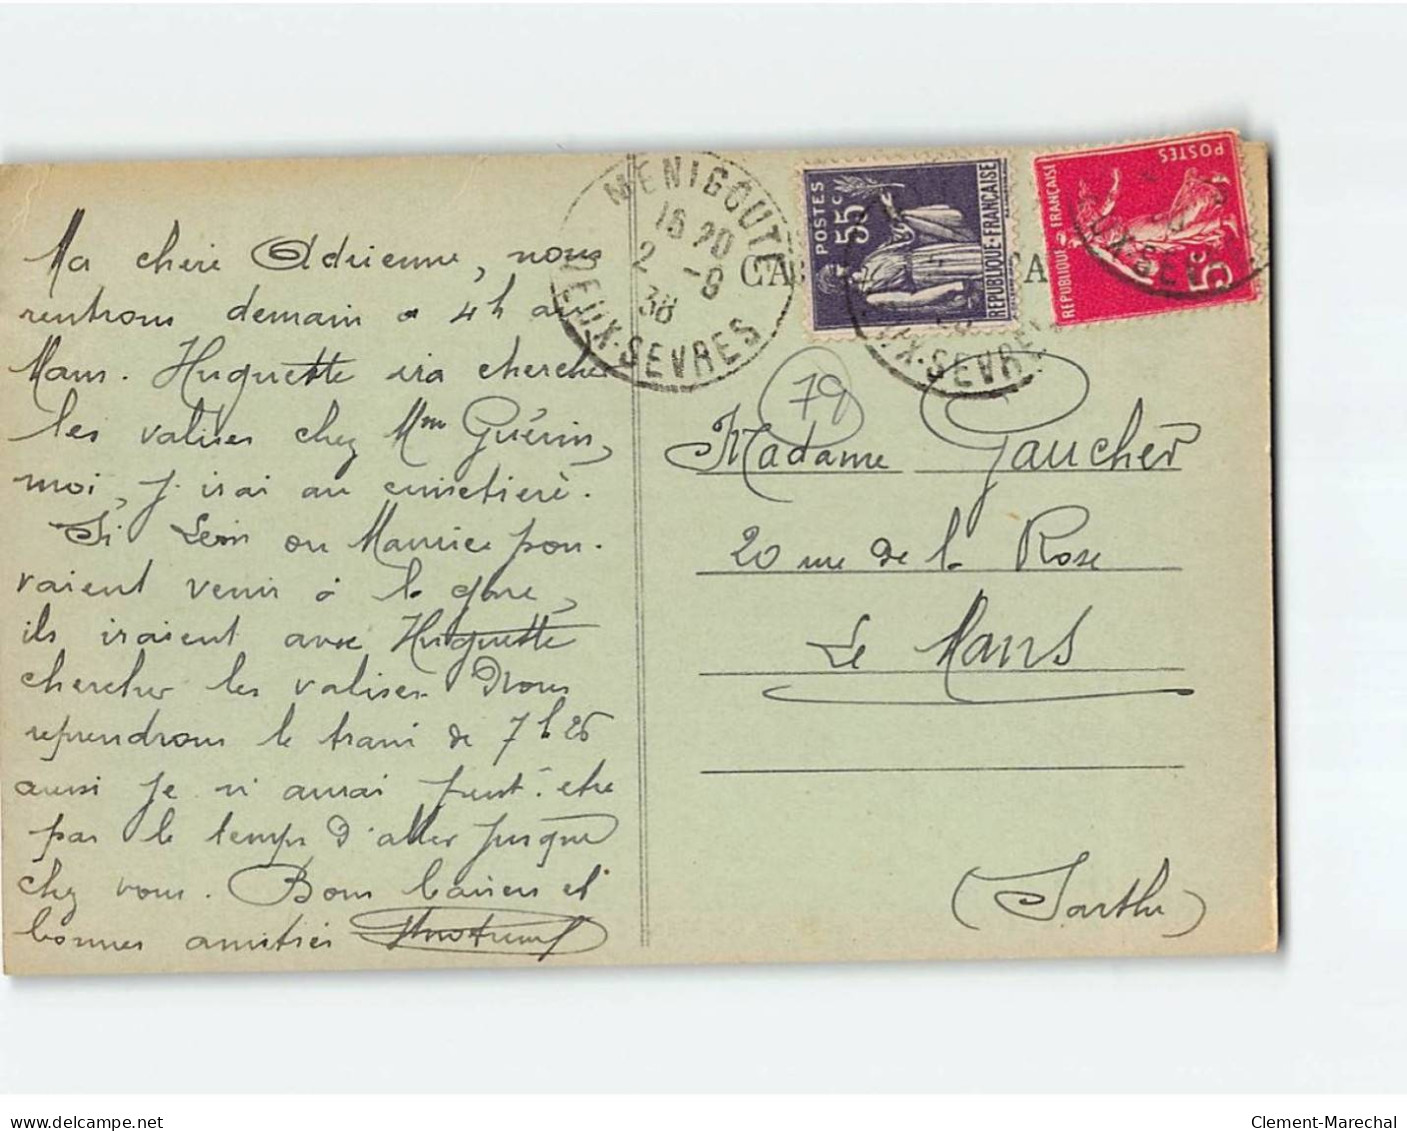 Ma chère Adrienne, nous
rentrons demain a 4h au
Mans. Huguette ira chercher
les valises chez Mme Guérin,
moi, j'irai au cimetière.
Si Léon ou Maurice pou-
vaient venir à la gare,
ils iraient avec Huguette
chercher les valises. Nous
reprendrons le train de 7h26
aussi je n'aurai peut-être
pas le temps d'aller jusque
chez vous. Bons baisers et
bonnes amitiés
MENIGOUTE
16 20
2 -8
38
DEUX-SEVRES
CA
POSTES
55c
REPUBLIQUE FRANÇAISE
DEUX-SEVRES
POSTES
REPUBLIQUE FRANÇAISE
5c
79
Madame Gaucher
20 rue de la Rose
Le Mans
(Sarthe)
Clement-Marechal
www.delcampe.net